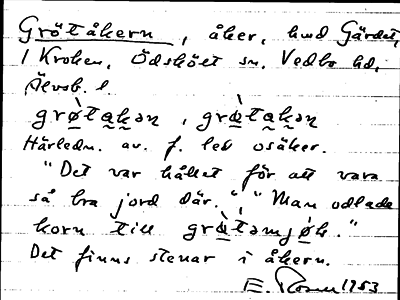 Grötåkern, åker, hmd Gärdet,
1 Kroken, Ödskölt sn. Vedbo hd,
Älvsb. l.
grø̀takən, grø̀takən
Härledn. av f. led osäker.
"Det var hållet för att vara
så bra jord där." "Man odlade
korn till grø̀təmjøl."
Det finns stenar i åkern.
E. 1953